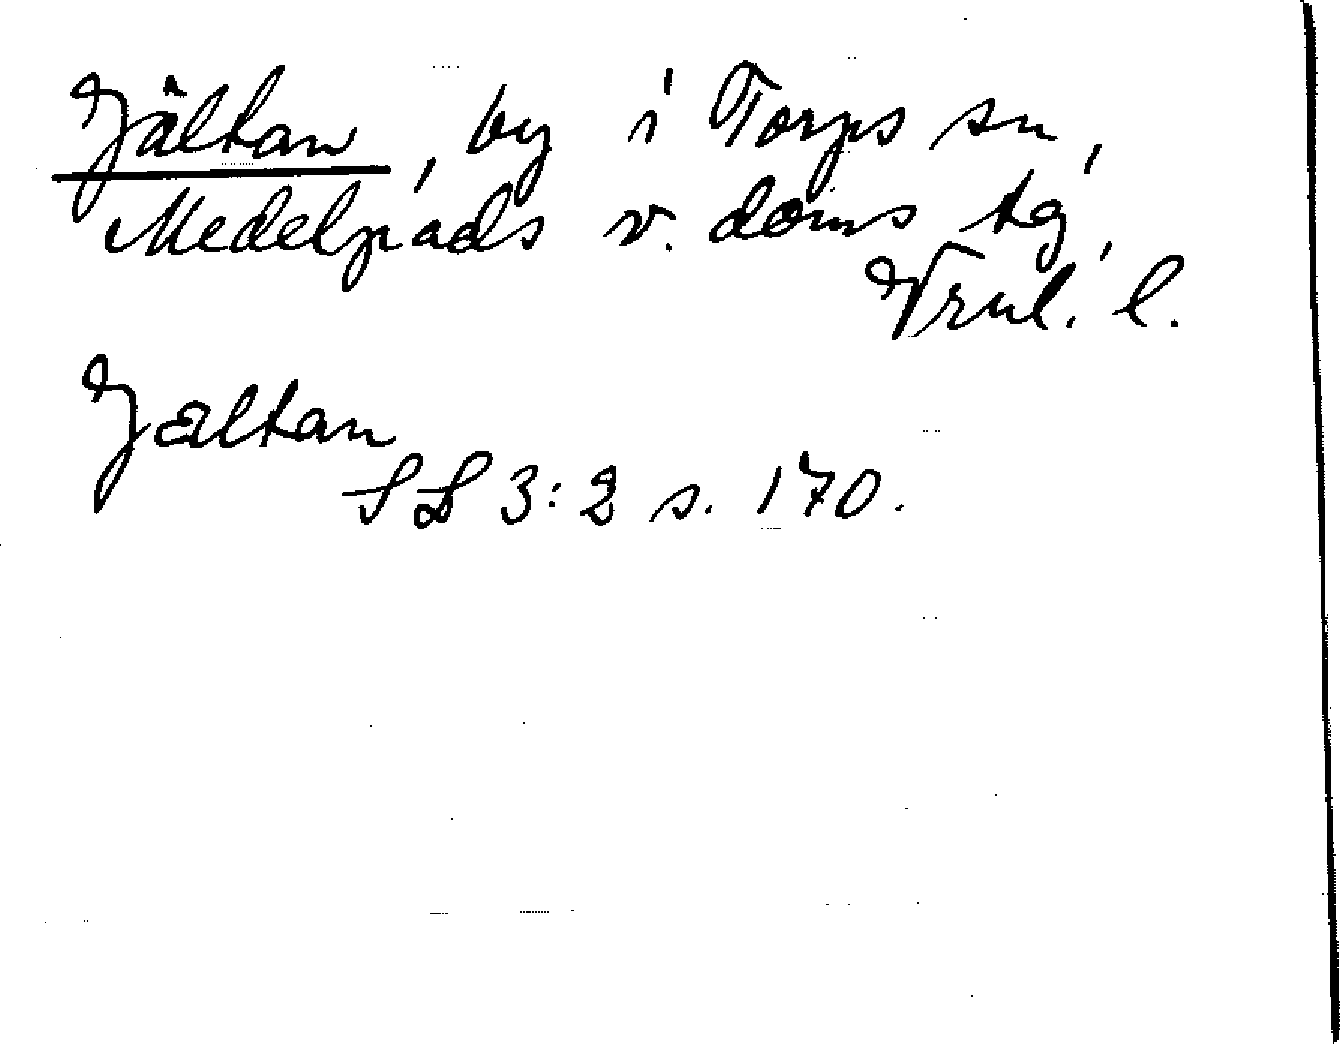 Jältan, by i Torps sn,
Medelpads v. doms tg,
Vrnl. l.
Jæltan
SL 3:2 s. 170.